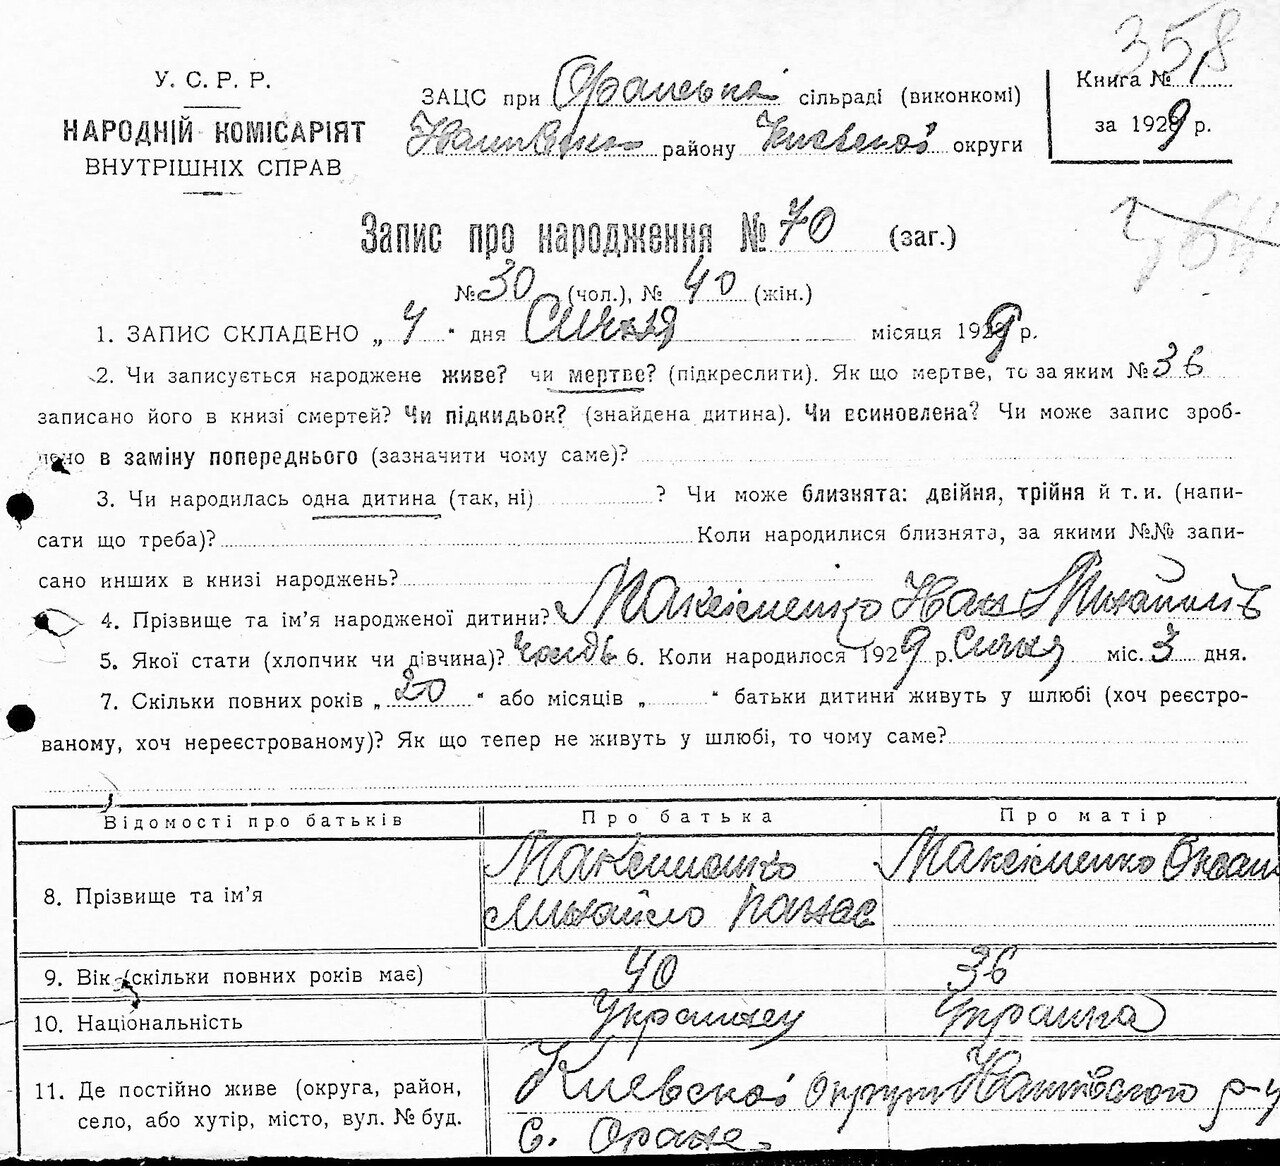 358
У. С. Р. Р.
НАРОДНІЙ КОМІСАРІЯТ
ВНУТРІШНІХ СПРАВ
ЗАЦС при Оранській сільраді (виконкомі)
району Київської округи
Книга №
за 1929 р.
Запис про народження № 70 (заг.)
№ 30 (чол.), № 40 (жін.)
1. ЗАПИС СКЛАДЕНО „ 4 " дня Січня місяця 1929 р.
2. Чи записується народжене живе? чи мертве? (підкреслити). Як що мертве, то за яким № 36
записано його в книзі смертей? Чи підкидьок? (знайдена дитина). Чи всиновлена? Чи може запис зроб-
лено в заміну попереднього (зазначити чому саме)?
3. Чи народилась одна дитина (так, ні) ? Чи може близнята: двійня, трійня й т. и. (напи-
сати що треба)? Коли народилися близнята, за якими №№ запи-
сано инших в книзі народжень?
4. Прізвище та ім'я народженої дитини? Максіменко Иван Михайлів
5. Якої стати (хлопчик чи дівчина)? 6. Коли народилося 1929 р. Січня міс. 3 дня.
7. Скільки повних років „ 20 " або місяців „ " батьки дитини живуть у шлюбі (хоч реєстро-
ваному, хоч нереєстрованому)? Як що тепер не живуть у шлюбі, то чому саме?
Відомості про батьків Про батька Про матір
8. Прізвище та ім'я Максименко Михайло Панас Максіменко Оксана
9. Вік (скільки повних років має) 40 36
10. Національність Украинец Украинка
11. Де постійно живе (округа, район, Киевской округи р-у
село, або хутір, місто, вул. № буд. с. Оране